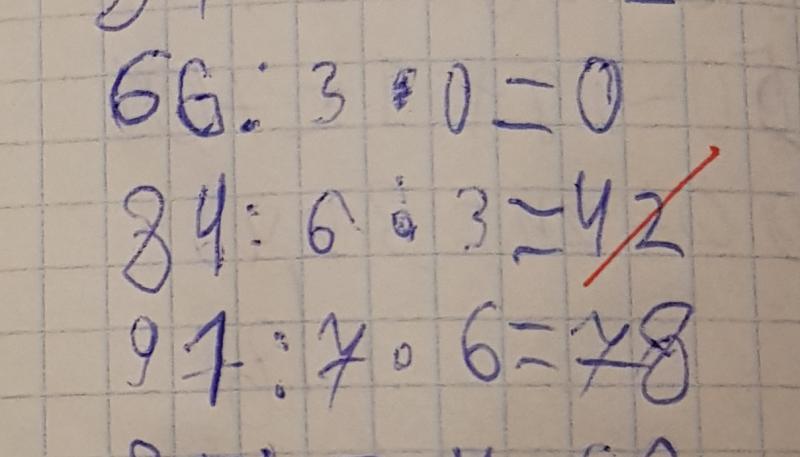 66 : 3 · 0 = 0
84 : 6 : 3 = 42
91 : 7 · 6 = 78